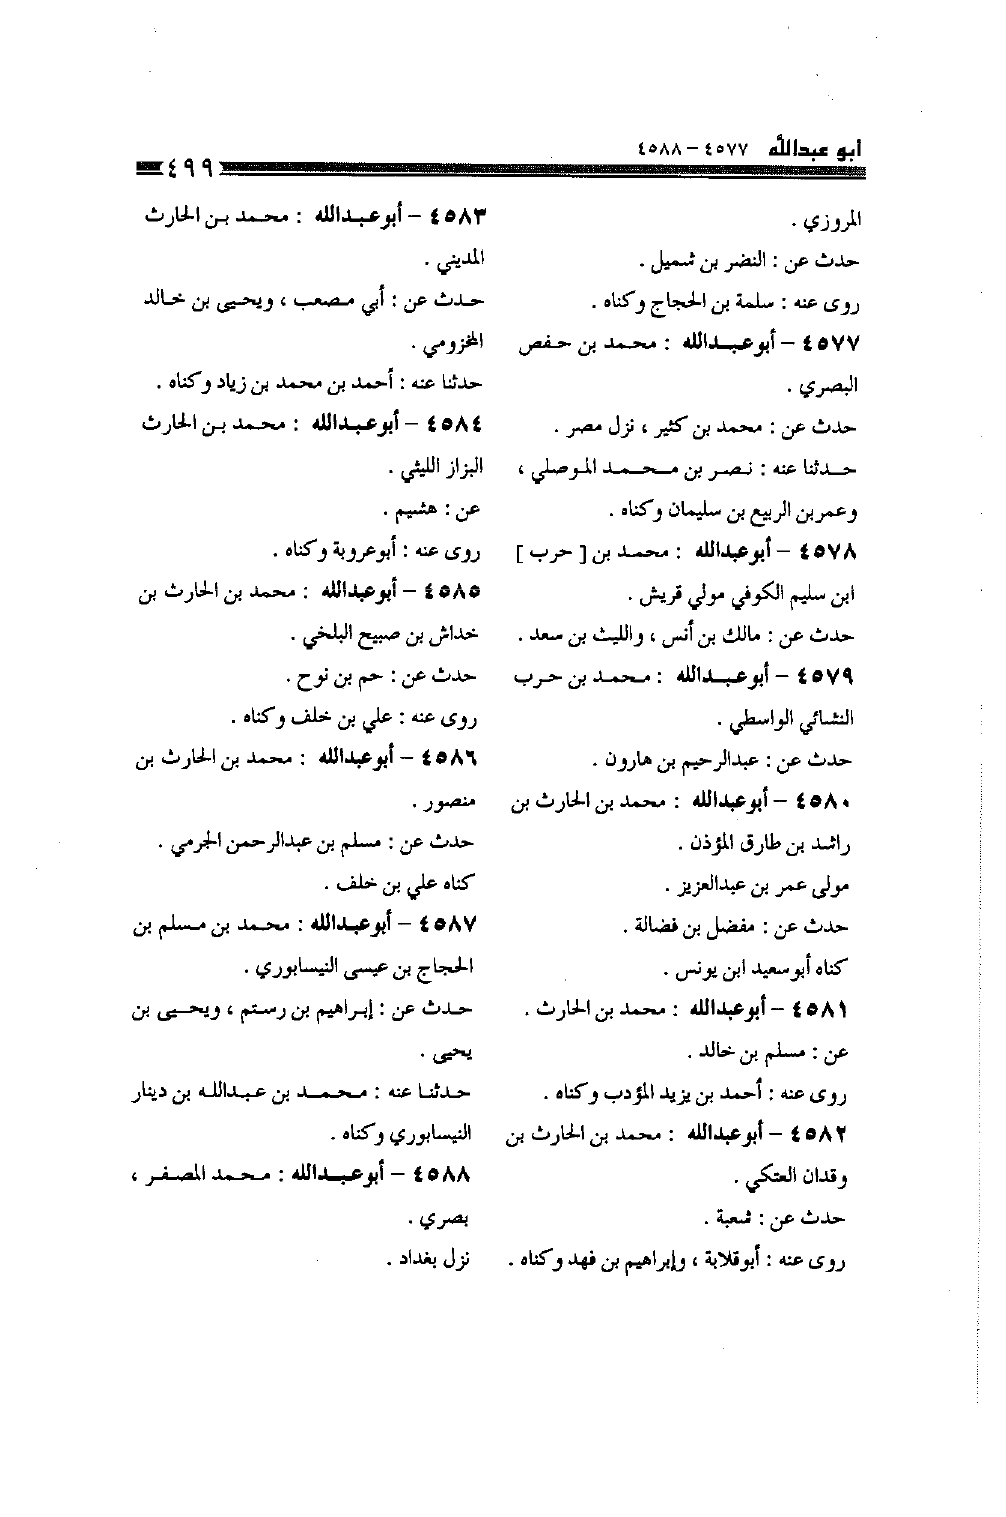 أبو عبدالله ٤٥٧٧ – ٤٥٨٨
٤٩٩
المروزي .
حدث عن : النضر بن شميل .
روى عنه : سلمة بن الحجاج وكناه .
٤٥٧٧ – أبو عبدالله : محمد بن حفص
البصري .
حدث عن : محمد بن كثير ، نزل مصر .
حدثنا عنه : نصر بن محمد الموصلي ،
وعمر بن الربيع بن سليمان وكناه .
٤٥٧٨ – أبو عبدالله : محمد بن [ حرب ]
ابن سليم الكوفي مولي قريش .
حدث عن : مالك بن أنس ، والليث بن سعد .
٤٥٧٩ – أبو عبدالله : محمد بن حرب
النشائي الواسطي .
حدث عن : عبدالرحيم بن هارون .
٤٥٨٠ – أبو عبدالله : محمد بن الحارث بن
راشد بن طارق المؤذن .
مولى عمر بن عبدالعزيز .
حدث عن : مفضل بن فضالة .
كناه أبو سعيد ابن يونس .
٤٥٨١ – أبو عبدالله : محمد بن الحارث .
عن : مسلم بن خالد .
روى عنه : أحمد بن يزيد المؤدب وكناه .
٤٥٨٢ – أبو عبدالله : محمد بن الحارث بن
وقدان العتكي .
حدث عن : شعبة .
روى عنه : أبو قلابة ، وإبراهيم بن فهد وكناه .
٤٥٨٣ – أبو عبدالله : محمد بن الحارث
المديني .
حدث عن : أبي مصعب ، ويحيى بن خالد
المخزومي .
حدثنا عنه : أحمد بن محمد بن زياد وكناه .
٤٥٨٤ – أبو عبدالله : محمد بن الحارث
البزاز الليثي .
عن : هشيم .
روى عنه : أبو عروبة وكناه .
٤٥٨٥ – أبو عبدالله : محمد بن الحارث بن
خداش بن صبيح البلخي .
حدث عن : حم بن نوح .
روى عنه : علي بن خلف وكناه .
٤٥٨٦ – أبو عبدالله : محمد بن الحارث بن
منصور .
حدث عن : مسلم بن عبدالرحمن الجرمي .
كناه علي بن خلف .
٤٥٨٧ – أبو عبدالله : محمد بن مسلم بن
الحجاج بن عيسى النيسابوري .
حدث عن : إبراهيم بن رستم ، ويحيى بن
يحيى .
حدثنا عنه : محمد بن عبدالله بن دينار
النيسابوري وكناه .
٤٥٨٨ – أبو عبدالله : محمد المصفر ،
بصري .
نزل بغداد .